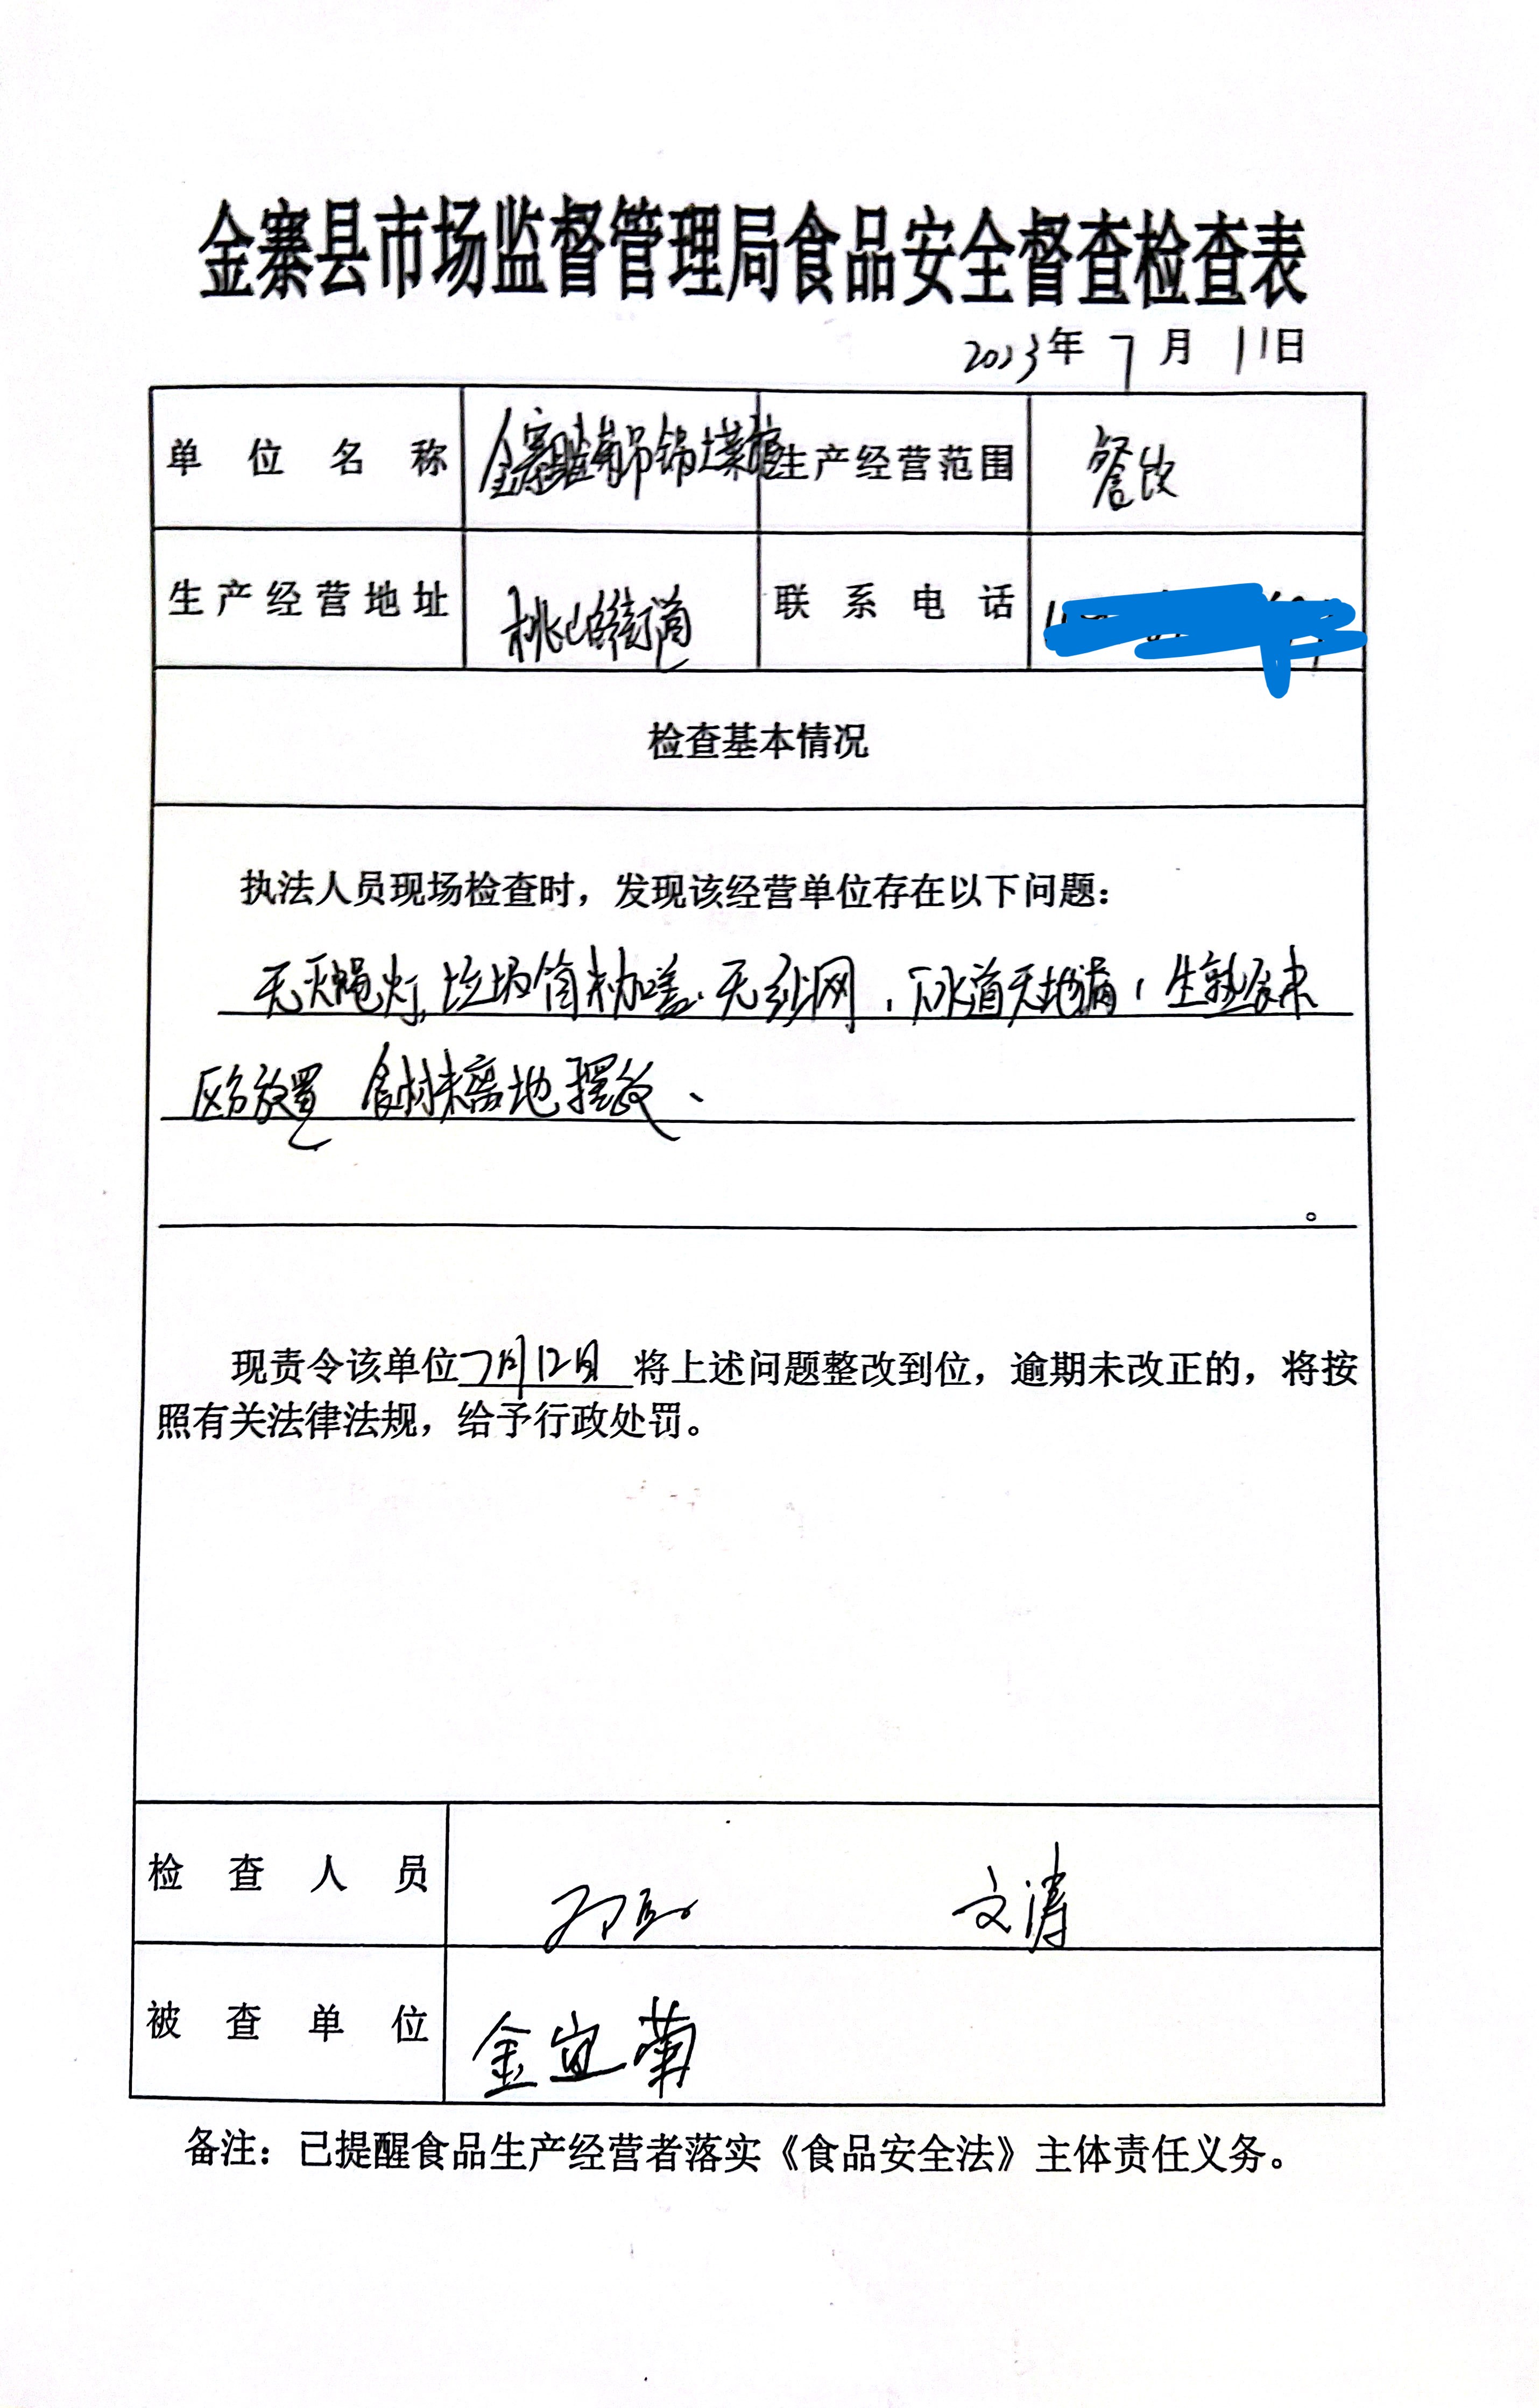 金寨县市场监督管理局食品安全督查检查表
2023年 7 月 11日
单位名称 金寨县 吊锅土菜馆 生产经营范围 餐饮
生产经营地址 桃岭街道 联系电话
检查基本情况
执法人员现场检查时，发现该经营单位存在以下问题：
无灭蝇灯，垃圾筒未加盖、无纱网，下水道无地漏，生熟 未
区分放置 食材未离地摆放、
。
现责令该单位7月12日将上述问题整改到位，逾期未改正的，将按
照有关法律法规，给予行政处罚。
检查人员 文涛
被查单位 金宜菊
备注：已提醒食品生产经营者落实《食品安全法》主体责任义务。